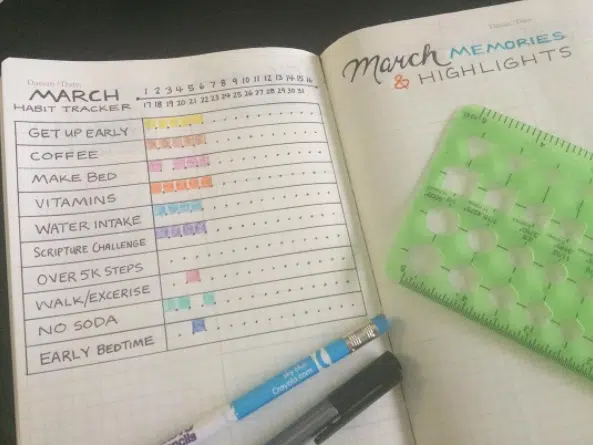 Datum / Date:
MARCH
HABIT TRACKER
1 2 3 4 5 6 7 8 9 10 11 12 13 14 15 16
17 18 19 20 21 22 23 24 25 26 27 28 29 30 31
GET UP EARLY
COFFEE
MAKE BED
VITAMINS
WATER INTAKE
SCRIPTURE CHALLENGE
OVER 5K STEPS
WALK/EXCERISE
NO SODA
EARLY BEDTIME
Datum / Date:
March MEMORIES
& HIGHLIGHTS
Crayola.com